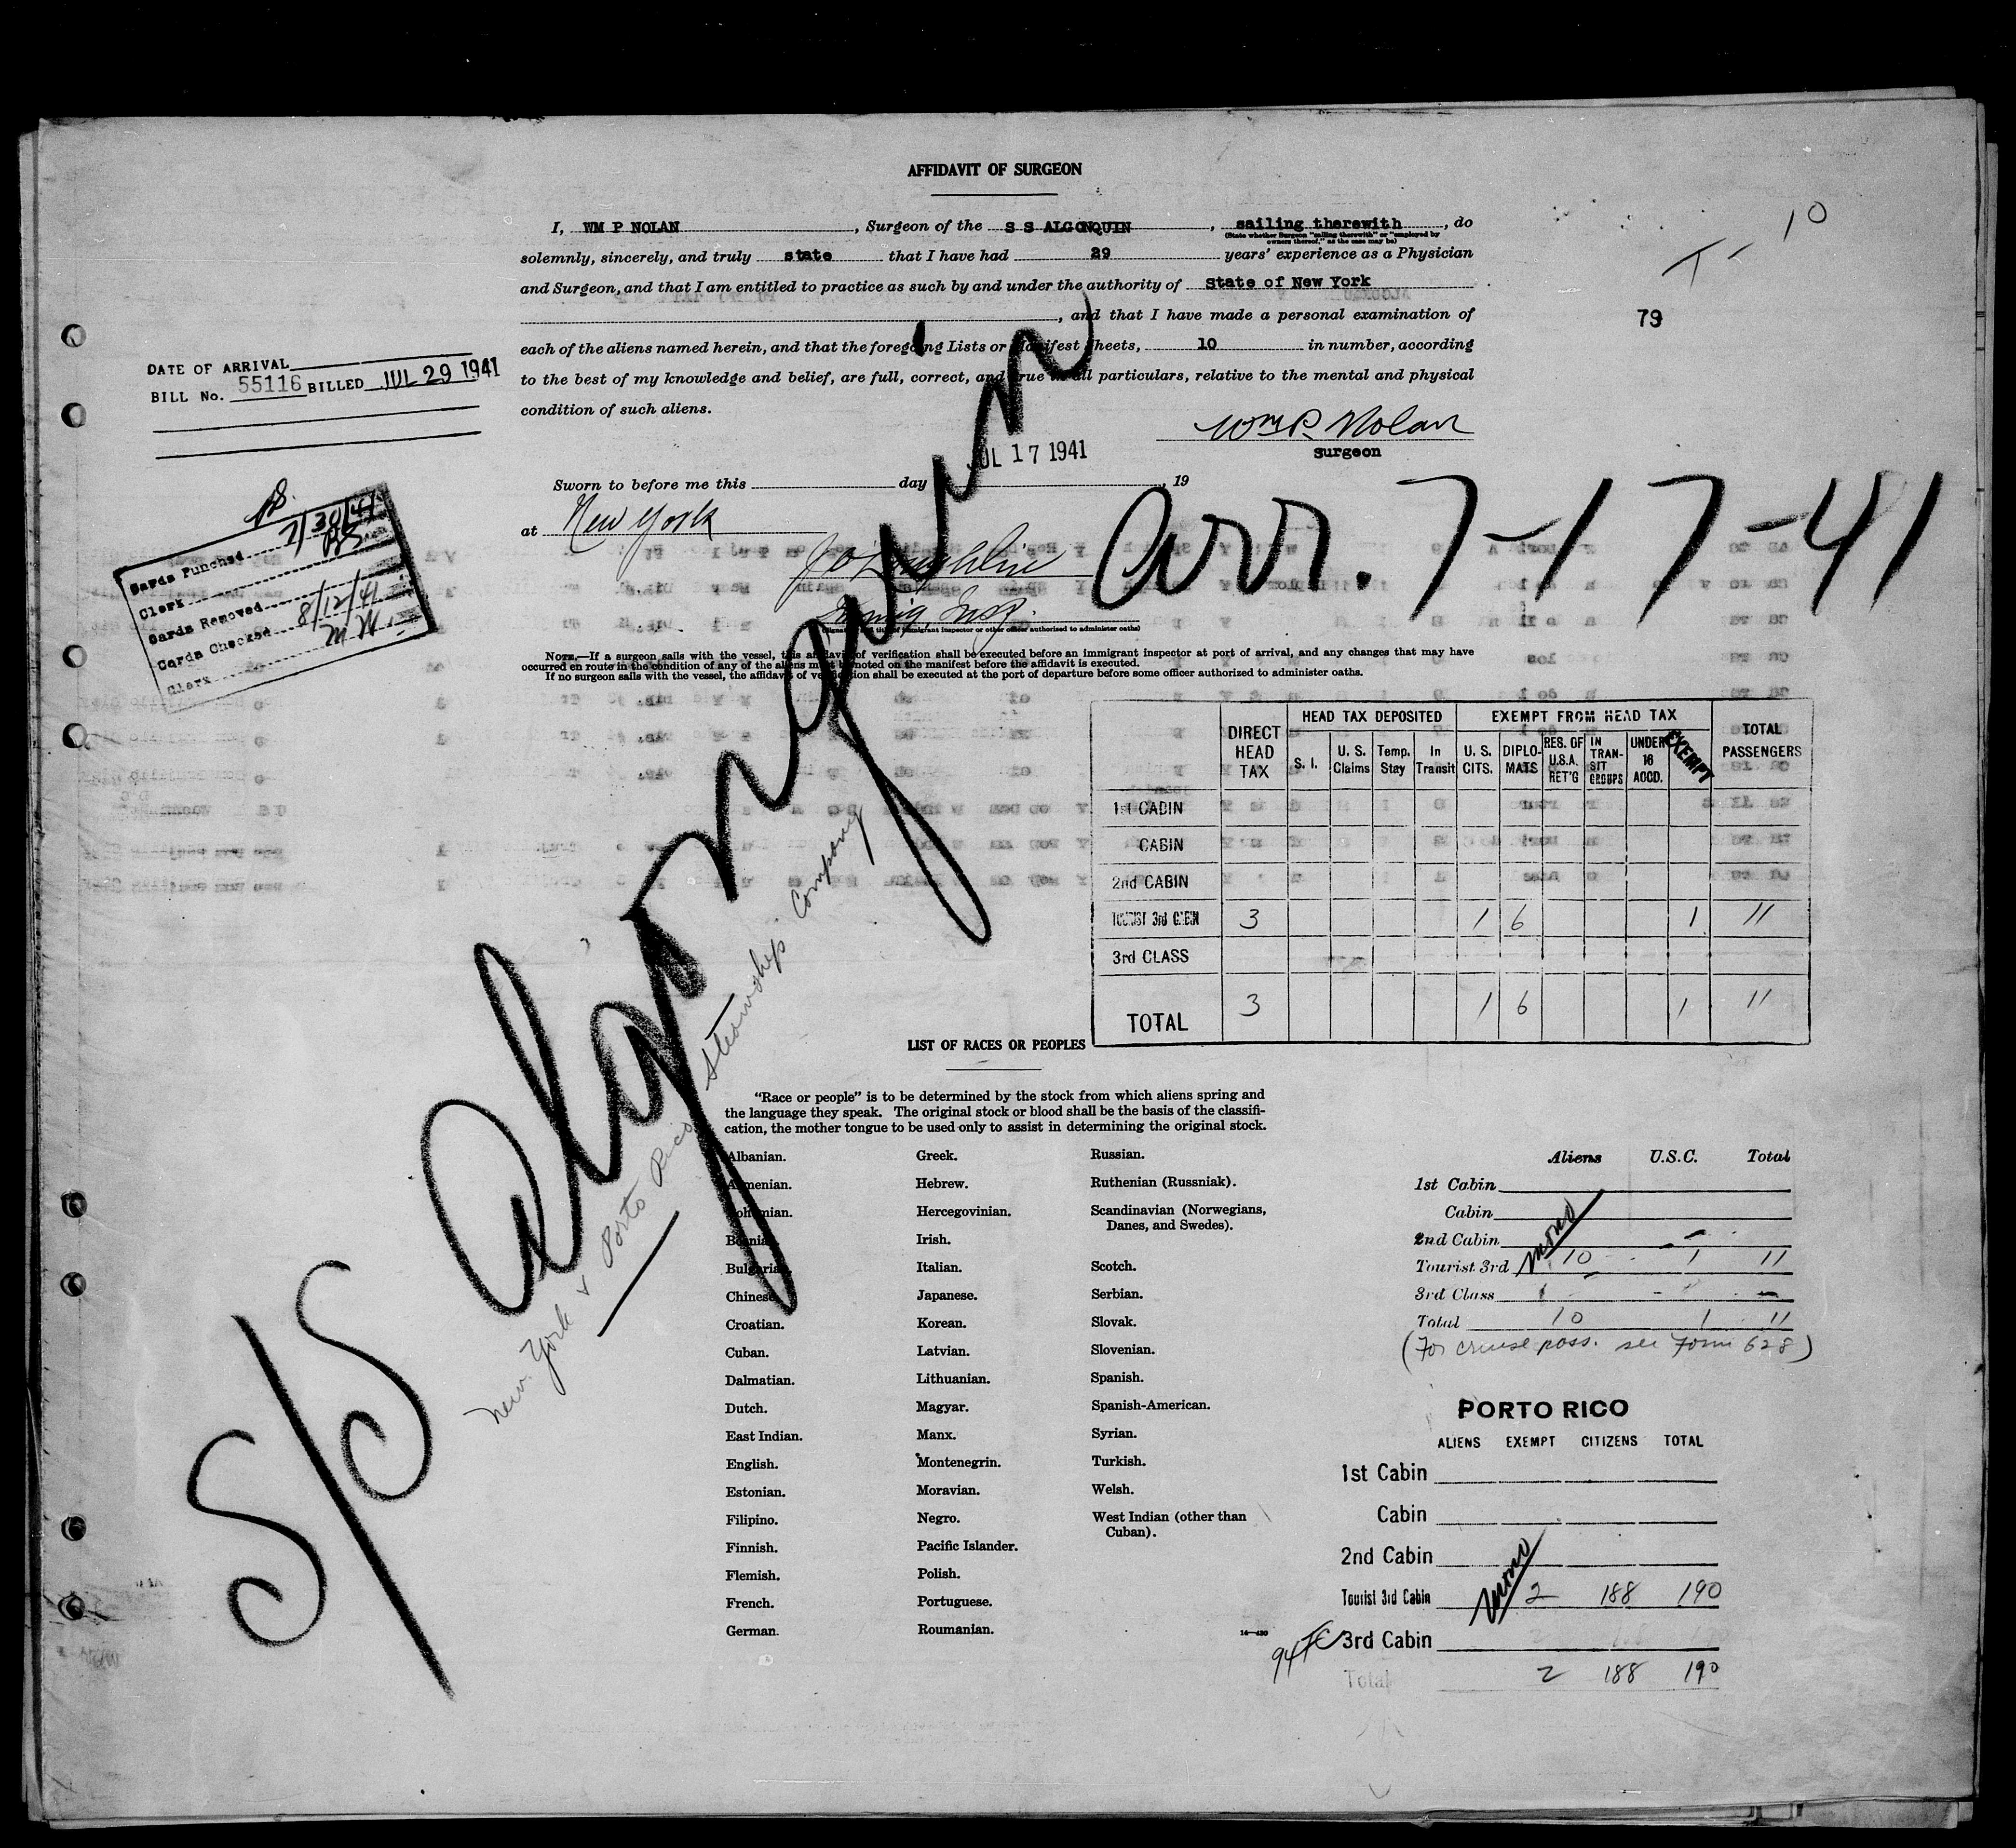 AFFIDAVIT OF SURGEON
I, WM P NOLAN, Surgeon of the S S ALGONQUIN, sailing therewith, do
(State whether Surgeon "sailing therewith" or "employed by
owners thereof," as the case may be)
solemnly, sincerely, and truly state that I have had 29 years' experience as a Physician
and Surgeon, and that I am entitled to practice as such by and under the authority of State of New York
, and that I have made a personal examination of
each of the aliens named herein, and that the foregoing Lists or Manifest Sheets, 10 in number, according
to the best of my knowledge and belief, are full, correct, and true in all particulars, relative to the mental and physical
condition of such aliens.
10
79
DATE OF ARRIVAL
BILL No. 55116 BILLED JUL 29 1941
Wm P. Nolan
Surgeon
JUL 17 1941
Sworn to before me this day , 19
at New York
Immig. Insp.
(Signature and title of immigrant inspector or other officer authorized to administer oaths)
Arr. 7-17-41
Cards Punched 7/30/41
Clerk BS
Cards Removed
Cards Checked 8/12/41
Clerk M W
NOTE.—If a surgeon sails with the vessel, this affidavit of verification shall be executed before an immigrant inspector at port of arrival, and any changes that may have
occurred en route in the condition of any of the aliens must be noted on the manifest before the affidavit is executed.
If no surgeon sails with the vessel, the affidavit of verification shall be executed at the port of departure before some officer authorized to administer oaths.
S/S Algonquin
New York & Porto Rico Steamship Company
DIRECT HEAD TAX HEAD TAX DEPOSITED EXEMPT FROM HEAD TAX TOTAL PASSENGERS
S. I. U. S. Claims Temp. Stay In Transit U. S. CITS. DIPLOMATS RES. OF U.S.A. RET'G IN TRANSIT GROUPS UNDER 16 ACCD. EXEMPT
1st CABIN
CABIN
2nd CABIN
TOURIST 3rd CABIN 3 1 6 1 11
3rd CLASS
TOTAL 3 1 6 1 11
LIST OF RACES OR PEOPLES
"Race or people" is to be determined by the stock from which aliens spring and
the language they speak. The original stock or blood shall be the basis of the classifi-
cation, the mother tongue to be used only to assist in determining the original stock.
Albanian.
Armenian.
Bohemian.
Bosnian.
Bulgarian.
Chinese.
Croatian.
Cuban.
Dalmatian.
Dutch.
East Indian.
English.
Estonian.
Filipino.
Finnish.
Flemish.
French.
German.
Greek.
Hebrew.
Hercegovinian.
Irish.
Italian.
Japanese.
Korean.
Latvian.
Lithuanian.
Magyar.
Manx.
Montenegrin.
Moravian.
Negro.
Pacific Islander.
Polish.
Portuguese.
Roumanian.
Russian.
Ruthenian (Russniak).
Scandinavian (Norwegians,
Danes, and Swedes).
Scotch.
Serbian.
Slovak.
Slovenian.
Spanish.
Spanish-American.
Syrian.
Turkish.
Welsh.
West Indian (other than
Cuban).
Aliens U.S.C. Total
1st Cabin
Cabin
2nd Cabin
Tourist 3rd 10 1 11
3rd Class
Total 10 1 11
(For cruise pass. see Form 628)
PORTO RICO
ALIENS EXEMPT CITIZENS TOTAL
1st Cabin
Cabin
2nd Cabin
Tourist 3rd Cabin 2 188 190
3rd Cabin
Total 2 188 190